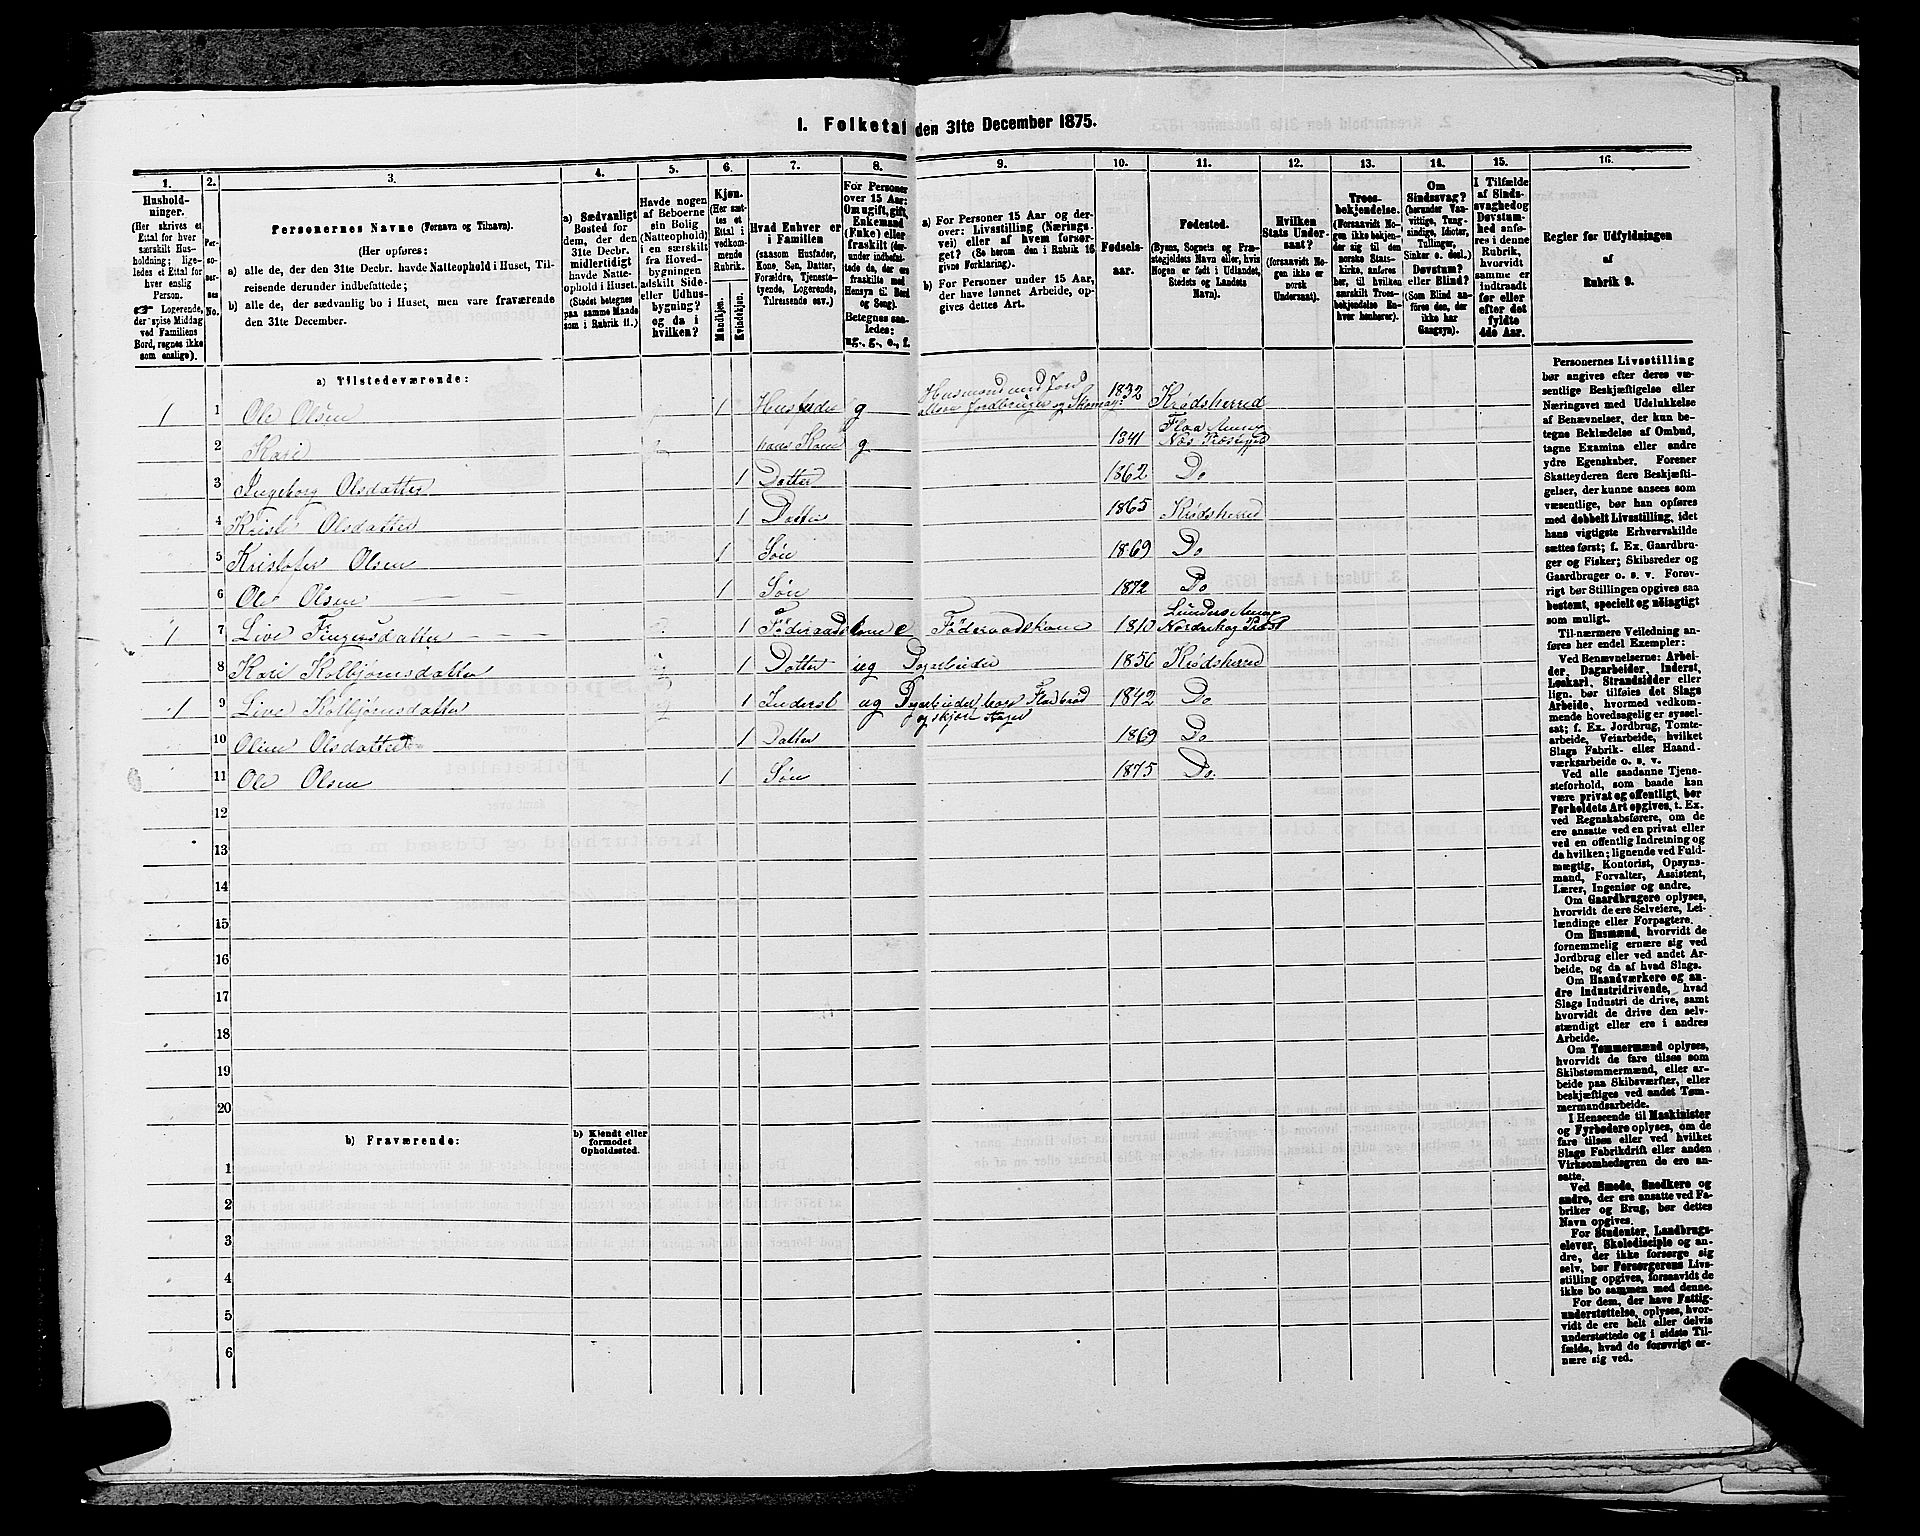 1. Folketal den 31te December 1875.
1.
2.
3.
4.
5.
6.
7.
8.
9.
10.
11.
12.
13.
14.
15.
16.
Hushold-
ninger.
(Her skrives et
Ettal for hver
særskilt Hus-
holdning; lige-
ledes et Ettal for
hver enslig
Person.
Logerende,
der spise Middag
ved Familiens
Bord, regnes ikke
som enslige).
Per-
so-
ner-
nes
No.
Personernes Navne (Fornavn og Tilnavn).
(Her opføres:
a) alle de, der den 31te Decbr. havde Natteophold i Huset, Til-
reisende derunder indbefattede;
b) alle de, der sædvanlig bo i Huset, men vare fraværende
den 31te December.
a) Sædvanligt
Bosted for
dem, der den
31te Decbr.
midlertidigt
havde Natte-
ophold i Huset.
(Stedet betegnes
paa samme Maade
som i Rubrik 11.)
Havde nogen
af Beboerne
sin Bolig
(Natteophold)
i en særskilt
fra Hoved-
bygningen
adskilt Side-
eller Udhus-
bygning?
og da i
hvilken?
Kjøn.
(Her sæt-
tes et
Ettal i
vedkom-
mende
Rubrik.
Mandkjøn.
Kvindekjøn.
Hvad Enhver er
i Familien
(saasom Husfader,
Kone, Søn, Datter,
Forældre, Tjeneste-
tyende, Logerende,
Tilreisende osv.)
For Personer
over 15 Aar:
Om ugift, gift,
Enkemand
(Enke) eller
fraskilt (der-
under indbefat-
tede da, der ere
fraskilte med
Hensyn til Bord
og Seng).
Betegnes saa-
ledes:
ug., g., e., f.
a) For Personer 15 Aar og der-
over: Livsstilling (Nærings-
vei) eller af hvem forsør-
get? (Se herom den i Rubrik 16
givne Forklaring).
b) For Personer under 15 Aar,
der have lønnet Arbeide, op-
gives dettes Art.
Fødsels-
aar.
Fødested.
(Byens, Sognets og Præ-
stegjeldets Navn eller, hvis
Nogen er født i Udlandet,
Stedets og Landets
Navn).
Hvilken
Stats Under-
saat?
(forsaavidt No-
gen ikke er
norsk
Undersaat).
Troes-
bekjendelse.
(Forsaavidt No-
gen ikke bekjen-
der sig til den
norske Stats-
kirke, anføres
her, til hvilken
særskilt Troes-
bekjendelse En-
hver henhører).
Om
Sindssvag?
(herunder Van-
vittige, Tung-
sindige, Idioter,
Tullinger,
Sinker o. desl.)
Døvstum?
eller Blind?
(Som Blind an-
føres den, der
ikke har
Gangsyn).
I Tilfælde
af Sinds-
svaghed og
Døvstum-
hed anfø-
res i denne
Rubrik,
hvorvidt
samme er
indtraadt
før eller
efter det
fyldte
4de Aar.
Regler for Udfyldningen
af
Rubrik 9.
a) Tilstedeværende:
1 1 Ole Olsen 1 Husfader g Husmand med Jord 1832 Krødsherred
2 Kari hans Kone g 1841 Flaa Næs Præstgjeld
3 Ingeborg Olsdatter 1 Datter 1862 Do
4 Kristi Olsdatter 1 Datter 1865 Krødsherred
5 Kristofer Olsen 1 Søn 1869 Do
6 Ole Olsen 1 Søn 1872 Do
1 7 Live Fingersdatter 1 Føderaadskone e Føderaadskone 1810
8 Kari Kolbjørnsdatter 1 Datter ug Dagarbeider 1856 Krødsherred
1 9 Live Kolbjørnsdatter 1 Inderst ug 1842 Do
10 Oline Olsdatter 1 Datter 1869 Do
11 Ole Olsen 1 Søn 1875 Do.
12
13
14
15
16
17
18
19
20
b) Fraværende:
b) Kjendt eller
formodet
Opholdssted.
1
2
3
4
5
6
Personernes Livsstilling
bør angives efter deres væ-
sentlige Beskjæftigelse eller
Næringsvei med Udelukkelse
af Benævnelser, der kun be-
tegne Beklædelse af Ombud,
tagne Examina eller andre
ydre Egenskaber. Forener
Skatteyderen flere Beskjæfti-
gelser, der kunne ansees som
væsentlige, bør han opføres
med dobbelt Livsstilling, idet
hans vigtigste Erhvervskilde
sættes først; f. Ex. Gaardbru-
ger og Fisker; Skibsreder og
Gaardbruger o. s. v. Forøv-
rigt bør Stillingen opgives saa
bestemt, specielt og nöiagtigt
som muligt.
Til nærmere Veiledning an-
føres her endel Exempler:
Ved Benævnelserne: Arbei-
der, Dagarbeider, Inderst,
Løskarl, Strandsidder eller
lign. bør tilføies det Slags
Arbeide, hvormed vedkom-
mende hovedsagelig er syssel-
sat; f. Ex. Jordbrug, Tomte-
arbeide, Veiarbeide, hvilket
Slags Fabrik- eller Haand-
værksarbeide o. s. v.
Ved alle saadanne Tjene-
steforhold, som baade kan
være privat og offentligt, bør
Forholdets Art opgives, t. Ex.
ved Regnskabsførere, om de
ere ansatte ved en privat eller
ved en offentlig Indretning og
da hvilken; lignende ved Fuld-
mægtig, Kontorist, Opsyns-
mand, Forvalter, Assistent,
Lærer, Ingeniør og andre.
Om Gaardbrugere oplyses,
hvorvidt de ere Selveiere, Lei-
lændinge eller Forpagtere.
Om Husmænd, hvorvidt de
fornemmelig ernære sig ved
Jordbrug eller ved andet Ar-
beide, og da af hvad Slags.
Om Haandværkere og an-
dre Industridrivende, hvad
Slags Industri de drive, samt
hvorvidt de drive den selv-
stændigt eller ere i andres
Arbeide.
Om Tømmermænd oplyses,
hvorvidt de fare tilsøs som
Skibstømmermænd, eller ar-
beide paa Skibsværfter, eller
beskjæftiges ved andet Tøm-
mermandsarbeide.
I Henseende til Maskinister
og Fyrbødere oplyses, om de
fare tilsøs eller ved hvilket
Slags Fabrikdrift eller anden
Virksomhedsgren de ere an-
satte.
Ved Smede, Snedkere og
andre, der ere ansatte ved Fa-
briker og Brug, bør dettes
Navn opgives.
For Studenter, Landbrugs-
elever, Skoledisciple og an-
dre, der ikke forsørge sig
selv, bør Forsørgerens Livs-
stilling opgives, forsaavidt de
ikke bo sammen med denne.
For dem, der have Fattig-
understøttelse, oplyses, hvor-
vidt de ere helt eller delvis
understøttede og i sidste Til-
fælde, hvad de forøvrigt er-
nære sig ved.